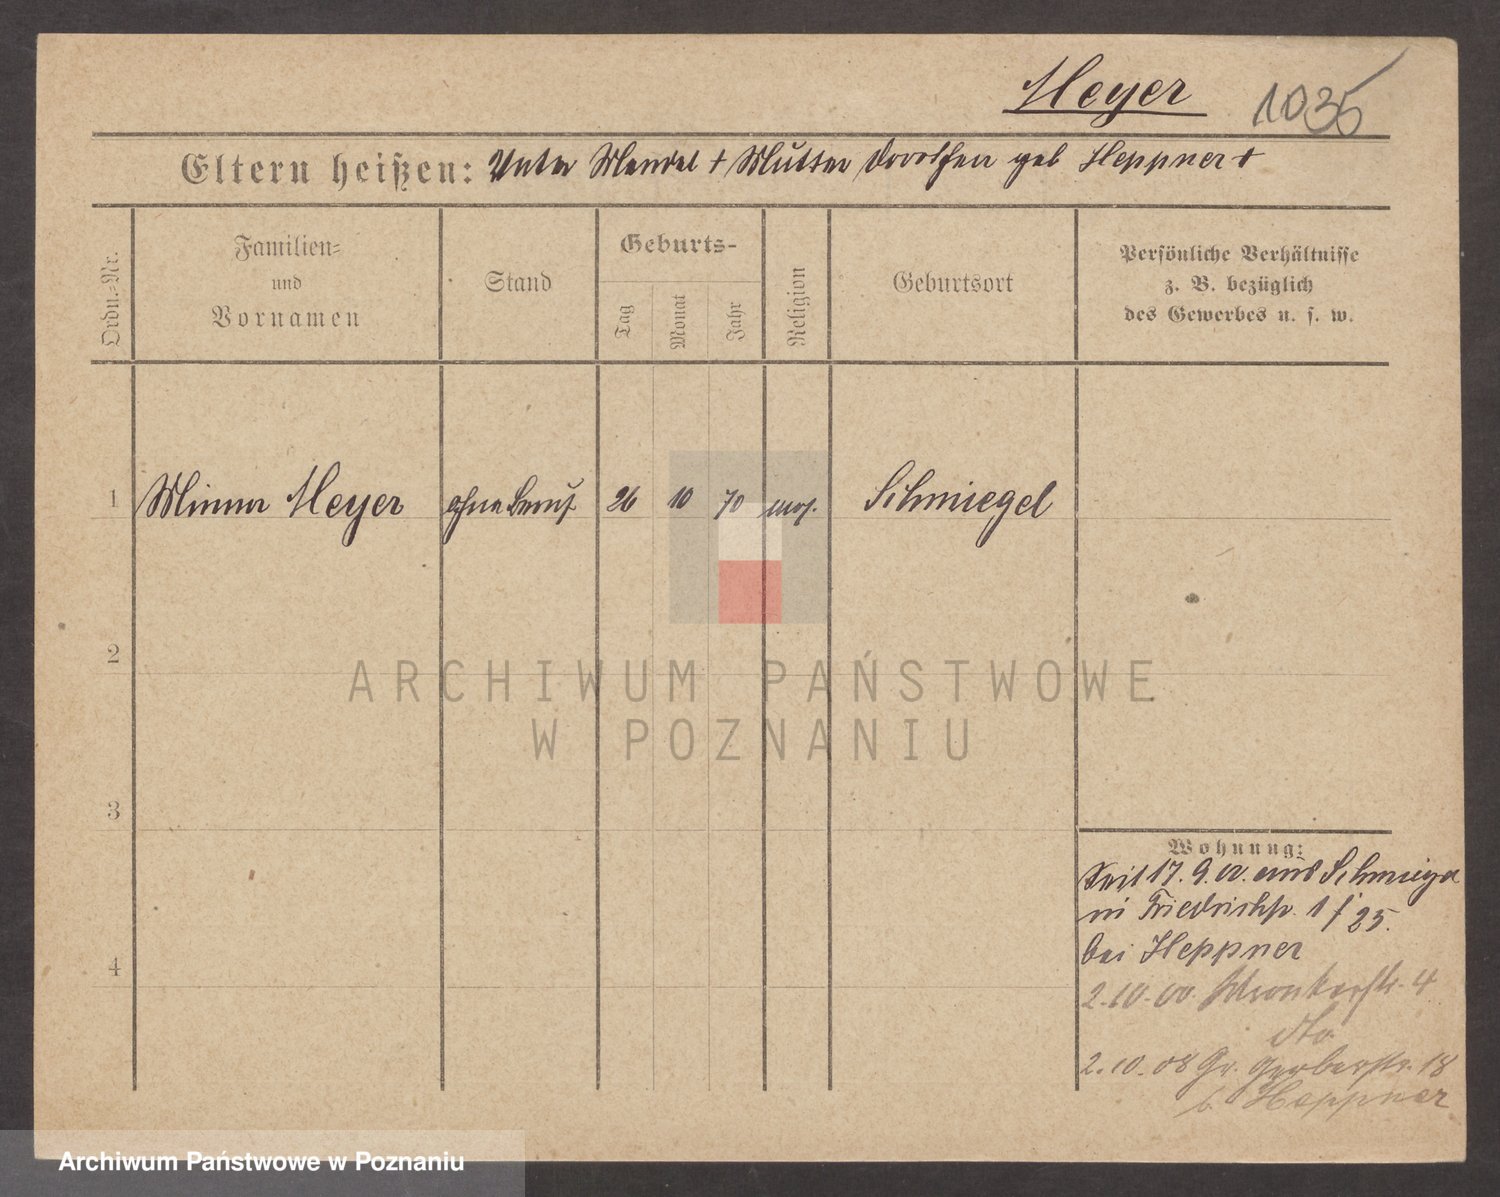 Heyer 1035
Eltern heißen: Vater Mendel † Mutter Dorothea geb Heppner †
Ordn.-Nr.
Familien-
und
Vornamen
Stand
Geburts-
Tag
Monat
Jahr
Religion
Geburtsort
Persönliche Verhältnisse
z. B. bezüglich
des Gewerbes u. s. w.
1 Minna Heyer ohne Beruf 26 10 70 mos. Schmiegel
2
3
4
Wohnung:
Seit 17. 9. 00. aus Schmiegel
in Friedrichstr. 25.
bei Heppner
2.10.00. Wronkerstr. 4
dto
2.10.08 Gr. Gerberstr. 18
b. Heppner
ARCHIWUM PAŃSTWOWE
W POZNANIU
Archiwum Państwowe w Poznaniu